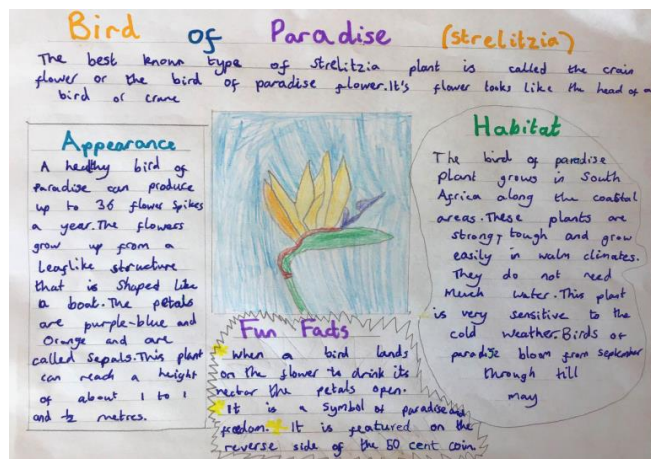 Bird of Paradise (Strelitzia)
The best known type of strelitzia plant is called the crain
flower or the bird of paradise flower.It's flower looks like the head of a
bird or crane
Appearance
A healthy bird of
Paradise can produce
up to 36 flower spikes
a year.The flowers
grow up from a
leaflike structure
that is shaped like
a boat.The petals
are purple-blue and
Orange and are
called sepals.This plant
can reach a height
of about 1 to 1
and ½ metres.
Fun Facts
When a bird lands
on the flower to drink its
nectar the petals open.
It is a symbol of paradise and
freedom. It is featured on the
reverse side of the 50 cent coin.
Habitat
The bird of paradise
plant grows in South
Africa along the coastal
areas.These plants are
strong, tough and grow
easily in walm climates.
They do not need
Much water.This plant
is very sensitive to the
cold weather.Birds of
paradise bloom from september
through till
may